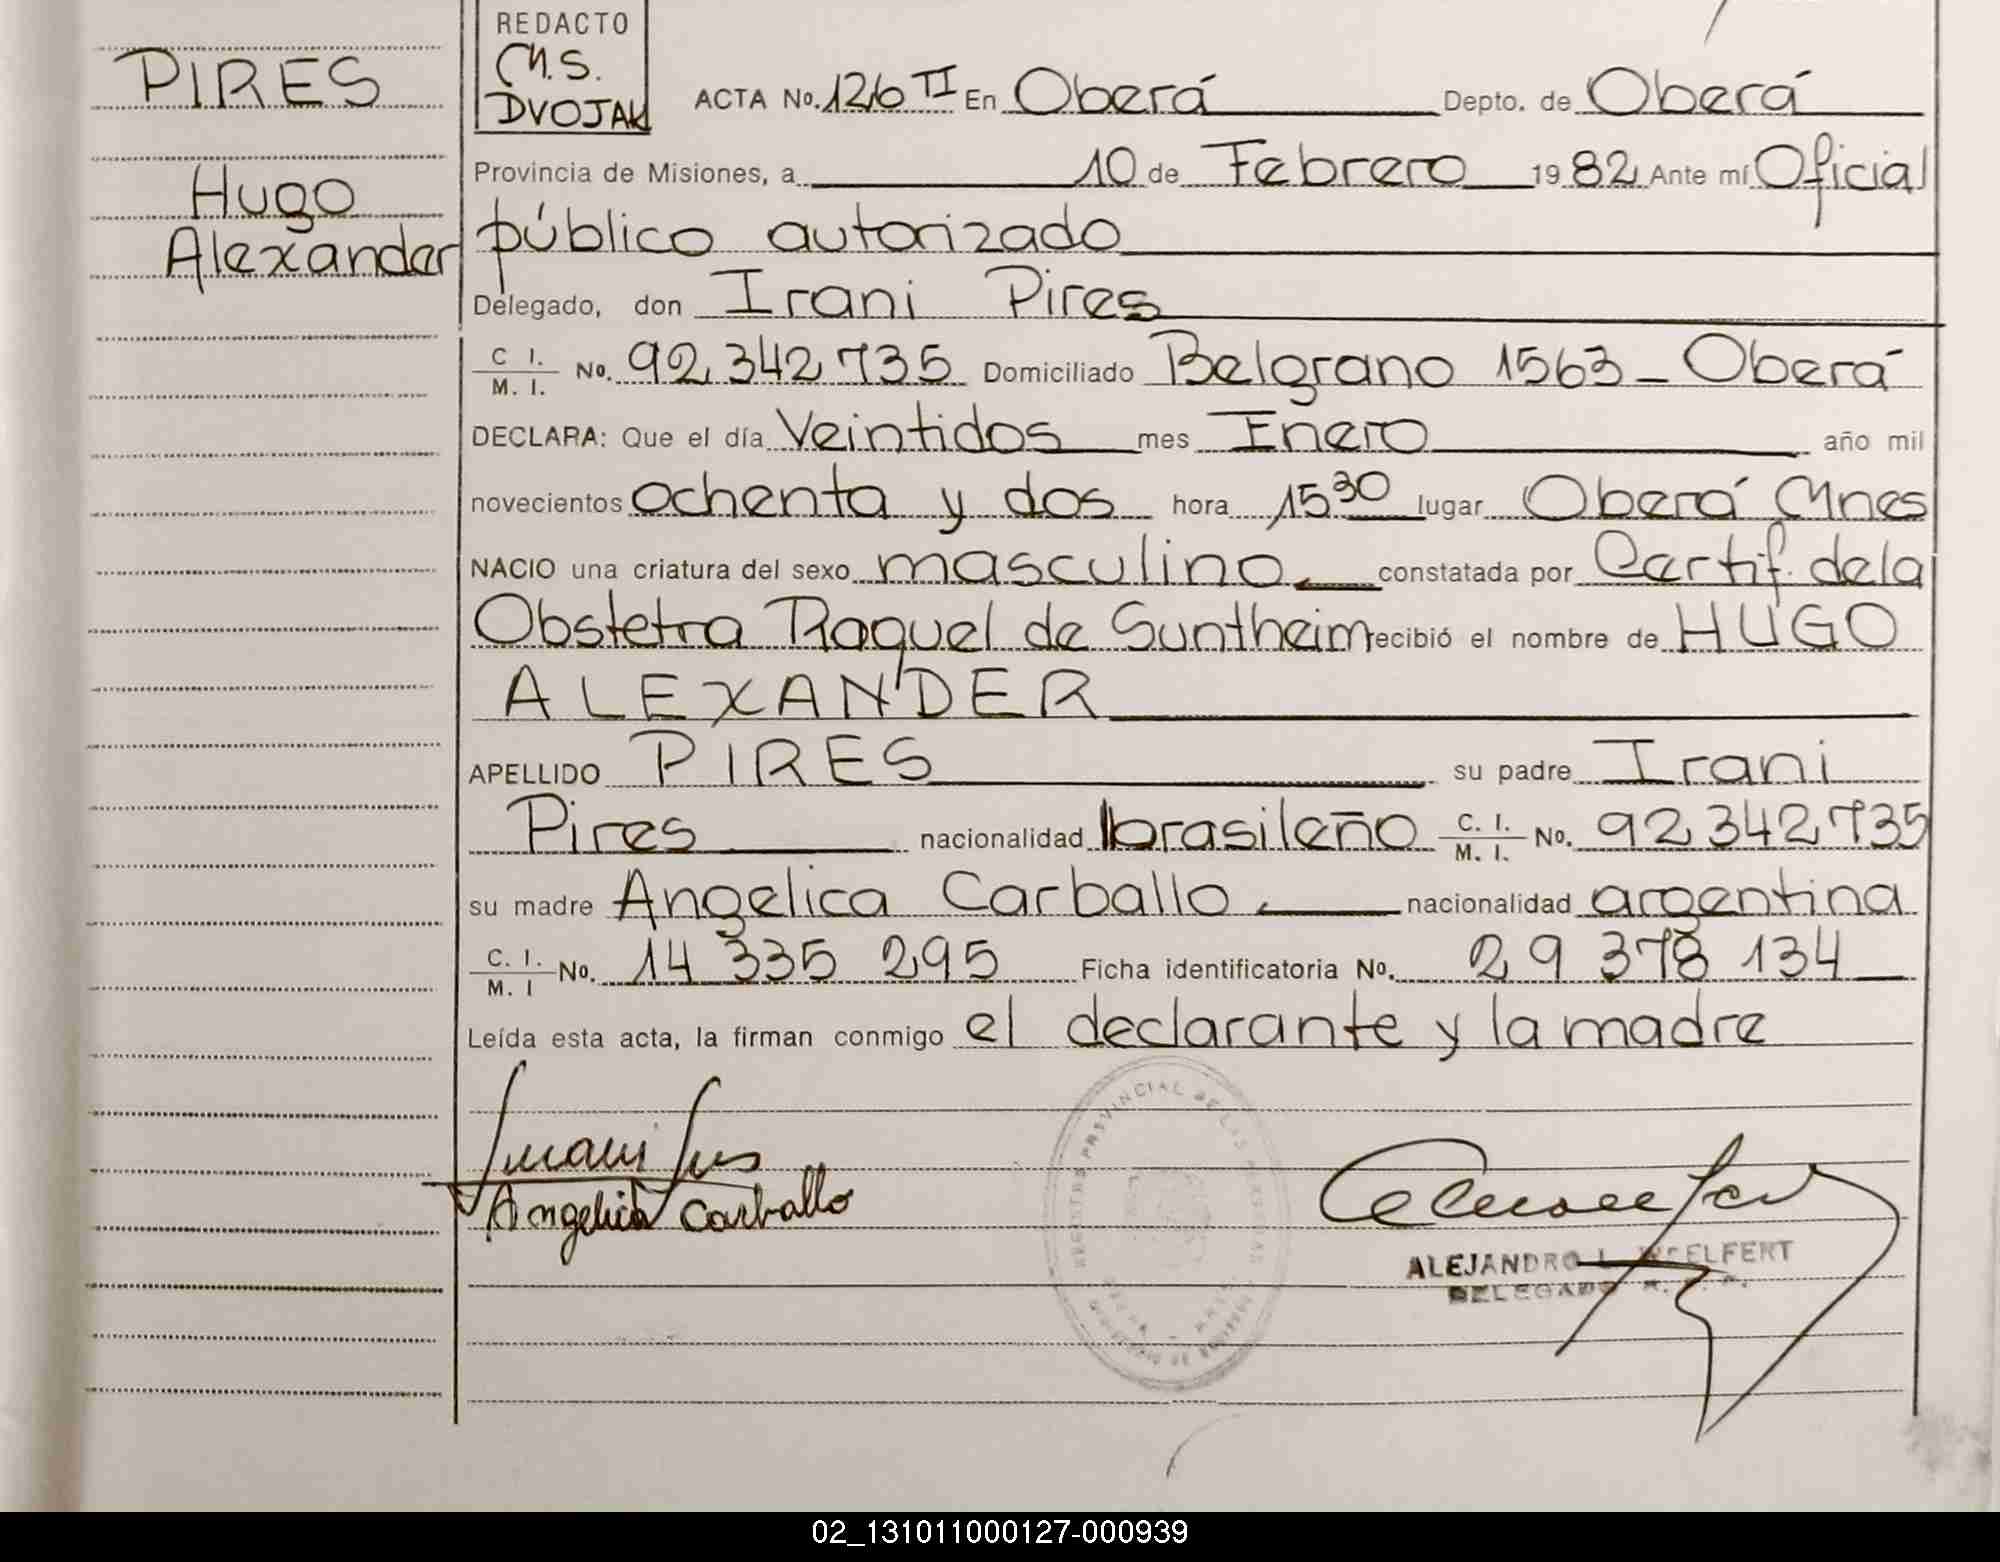 REDACTO
M.S.
DVOJAK
PIRES
Hugo
Alexander
ACTA No. 126 II En Oberá Depto. de Oberá
Provincia de Misiones, a 10 de Febrero 1982 Ante mí Oficial
público autorizado
Delegado, don Irani Pires
C I. M. I. No. 92 342 735 Domiciliado Belgrano 1563 - Oberá
DECLARA: Que el día Veintidos mes Enero año mil
novecientos ochenta y dos hora 15 30 lugar Oberá Mnes
NACIO una criatura del sexo masculino constatada por Certif. de la
Obstetra Raquel de Suntheim recibió el nombre de HUGO
ALEXANDER
APELLIDO PIRES su padre Irani
Pires nacionalidad brasileño C. I. M. I. No. 92 342 735
su madre Angelica Carballo nacionalidad argentina
C. I. M. I No. 14 335 295 Ficha identificatoria No. 29 378 134
Leída esta acta, la firman conmigo el declarante y la madre
Angelica Carballo
REGISTRO PROVINCIAL DE LAS PERSONAS
ALEJANDRO L. WOELFERT
DELEGADO R. P. P.
02_131011000127-000939